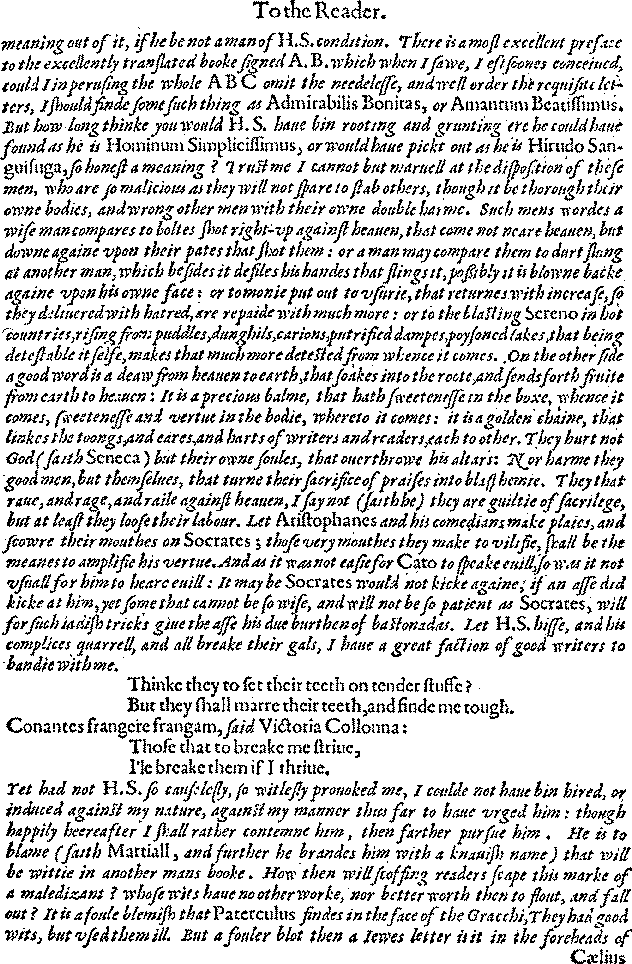 To the Reader.
meaning out of it, if he be not a man of H.S. condition. There is a most excellent preface
to the excellently translated booke signed A.B. which when I sawe, I eftsoones conceiued,
could I in perusing the whole A B C omit the needelesse, and well order the requisite let-
ters, I should finde some such thing as Admirabilis Bonitas, or Amantum Beatissimus.
But how long thinke you would H.S. haue bin rooting and grunting ere he could haue
found as he is Hominum Simplicissimus, or would haue pickt out as he is Hirudo San-
guisuga, so honest a meaning? Trust me I cannot but maruell at the disposition of these
men, who are so malicious as they will not spare to stab others, though it be thorough their
owne bodies, and wrong other men with their owne double harme. Such mens wordes a
wise man compares to boltes shot right-vp against heauen, that come not neare heauen, but
downe againe vpon their pates that shot them: or a man may compare them to durt flung
at another man, which besides it defiles his handes that flings it, possibly it is blowne backe
againe vpon his owne face: or to monie put out to vsurie, that returnes with increase, so
they deliuered with hatred, are repaide with much more: or to the blasting Sereno in hot
countries, rising from puddles, dunghils, carions, putrified dampes, poysoned lakes, that being
detestable it selfe, makes that much more detested from whence it comes. On the other side
a good word is a deaw from heauen to earth, that soakes into the roote, and sends forth fruite
from earth to heauen: It is a precious balme, that hath sweetenesse in the boxe, whence it
comes, sweetenesse and vertue in the bodie, whereto it comes: it is a golden chaine, that
linkes the toongs, and eares, and harts of writers and readers, each to other. They hurt not
God (saith Seneca) but their owne soules, that ouerthrowe his altars: Nor harme they
good men, but themselues, that turne their sacrifice of praises into blasphemie. They that
raue, and rage, and raile against heauen, I say not (saith he) they are guiltie of sacrilege,
but at least they loose their labour. Let Aristophanes and his comedians make plaies, and
scowre their mouthes on Socrates; those very mouthes they make to vilifie, shall be the
meanes to amplifie his vertue. And as it was not easie for Cato to speake euill, so was it not
vsuall for him to heare euill: It may be Socrates would not kicke againe, if an asse did
kicke at him, yet some that cannot be so wise, and will not be so patient as Socrates, will
for such iadish tricks giue the asse his due burthen of bastonadas. Let H.S. hisse, and his
complices quarrell, and all breake their gals, I haue a great faction of good writers to
bandie with me.
Thinke they to set their teeth on tender stuffe?
But they shall marre their teeth, and finde me tough.
Conantes frangere frangam, said Victoria Collonna:
Those that to breake me striue,
I'le breake them if I thriue.
Yet had not H.S. so causelesly, so witlesly prouoked me, I coulde not haue bin hired, or
induced against my nature, against my manner thus far to haue vrged him: though
happily heereafter I shall rather contemne him, then farther pursue him. He is to
blame (saith Martiall, and further he brandes him with a knauish name) that will
be wittie in another mans booke. How then will scoffing readers scape this marke of
a maledizant? whose wits haue no other worke, nor better worth then to flout, and fall
out? It is a foule blemish that Paterculus findes in the face of the Gracchi, They had good
wits, but vsed them ill. But a fouler blot then a Iewes letter is it in the foreheads of
Cælius